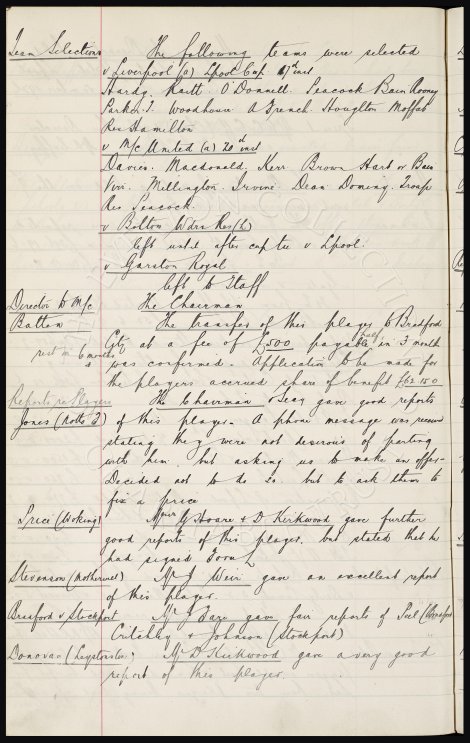 Team Selections The following teams were selected
v Liverpool (a) L'pool Cup 17th inst
Hardy. Raitt. O'Donnell. Peacock Bain Rooney
Parker J. Woodhouse. A French. Houghton Moffat
Res Hamilton
v M/c United (a) 20th inst
Davies. Macdonald. Kerr. Brown Hart or Bain
Virr. Millington. Irvine. Dean Dominy. Troup
Res Peacock.
v Bolton Wdrs Res (h)
left until after cup tie v Lpool.
v Garston Royal
left to Staff
Director to M/c The Chairman
Batten The transfer of this player to Bradford
City at a fee of £500 payable half in 3 month
rest in 6 months was confirmed. Application to be made for
the players accrued share of benefit £62.10.0
Reports re Players The Chairman & Secy gave good reports
Jones (Notts F) of this player. A phone message was received
stating they were not desirous of parting
with him, but asking us to make an offer.
Decided not to do so but to ask them to
fix a price
Price (Woking) Messrs G Hoare & D. Kirkwood gave further
good reports of this player, but stated that he
had signed Form
Stevenson (Motherwell) Mr J Weir gave an excellent report
of this player.
Bradford v Stockport Mr J gave fair reports of Peel (Bradford)
Critchley & Johnson (Stockport)
Donovan (Leytonstone) Mr D Kirkwood gave a very good
report of this player.